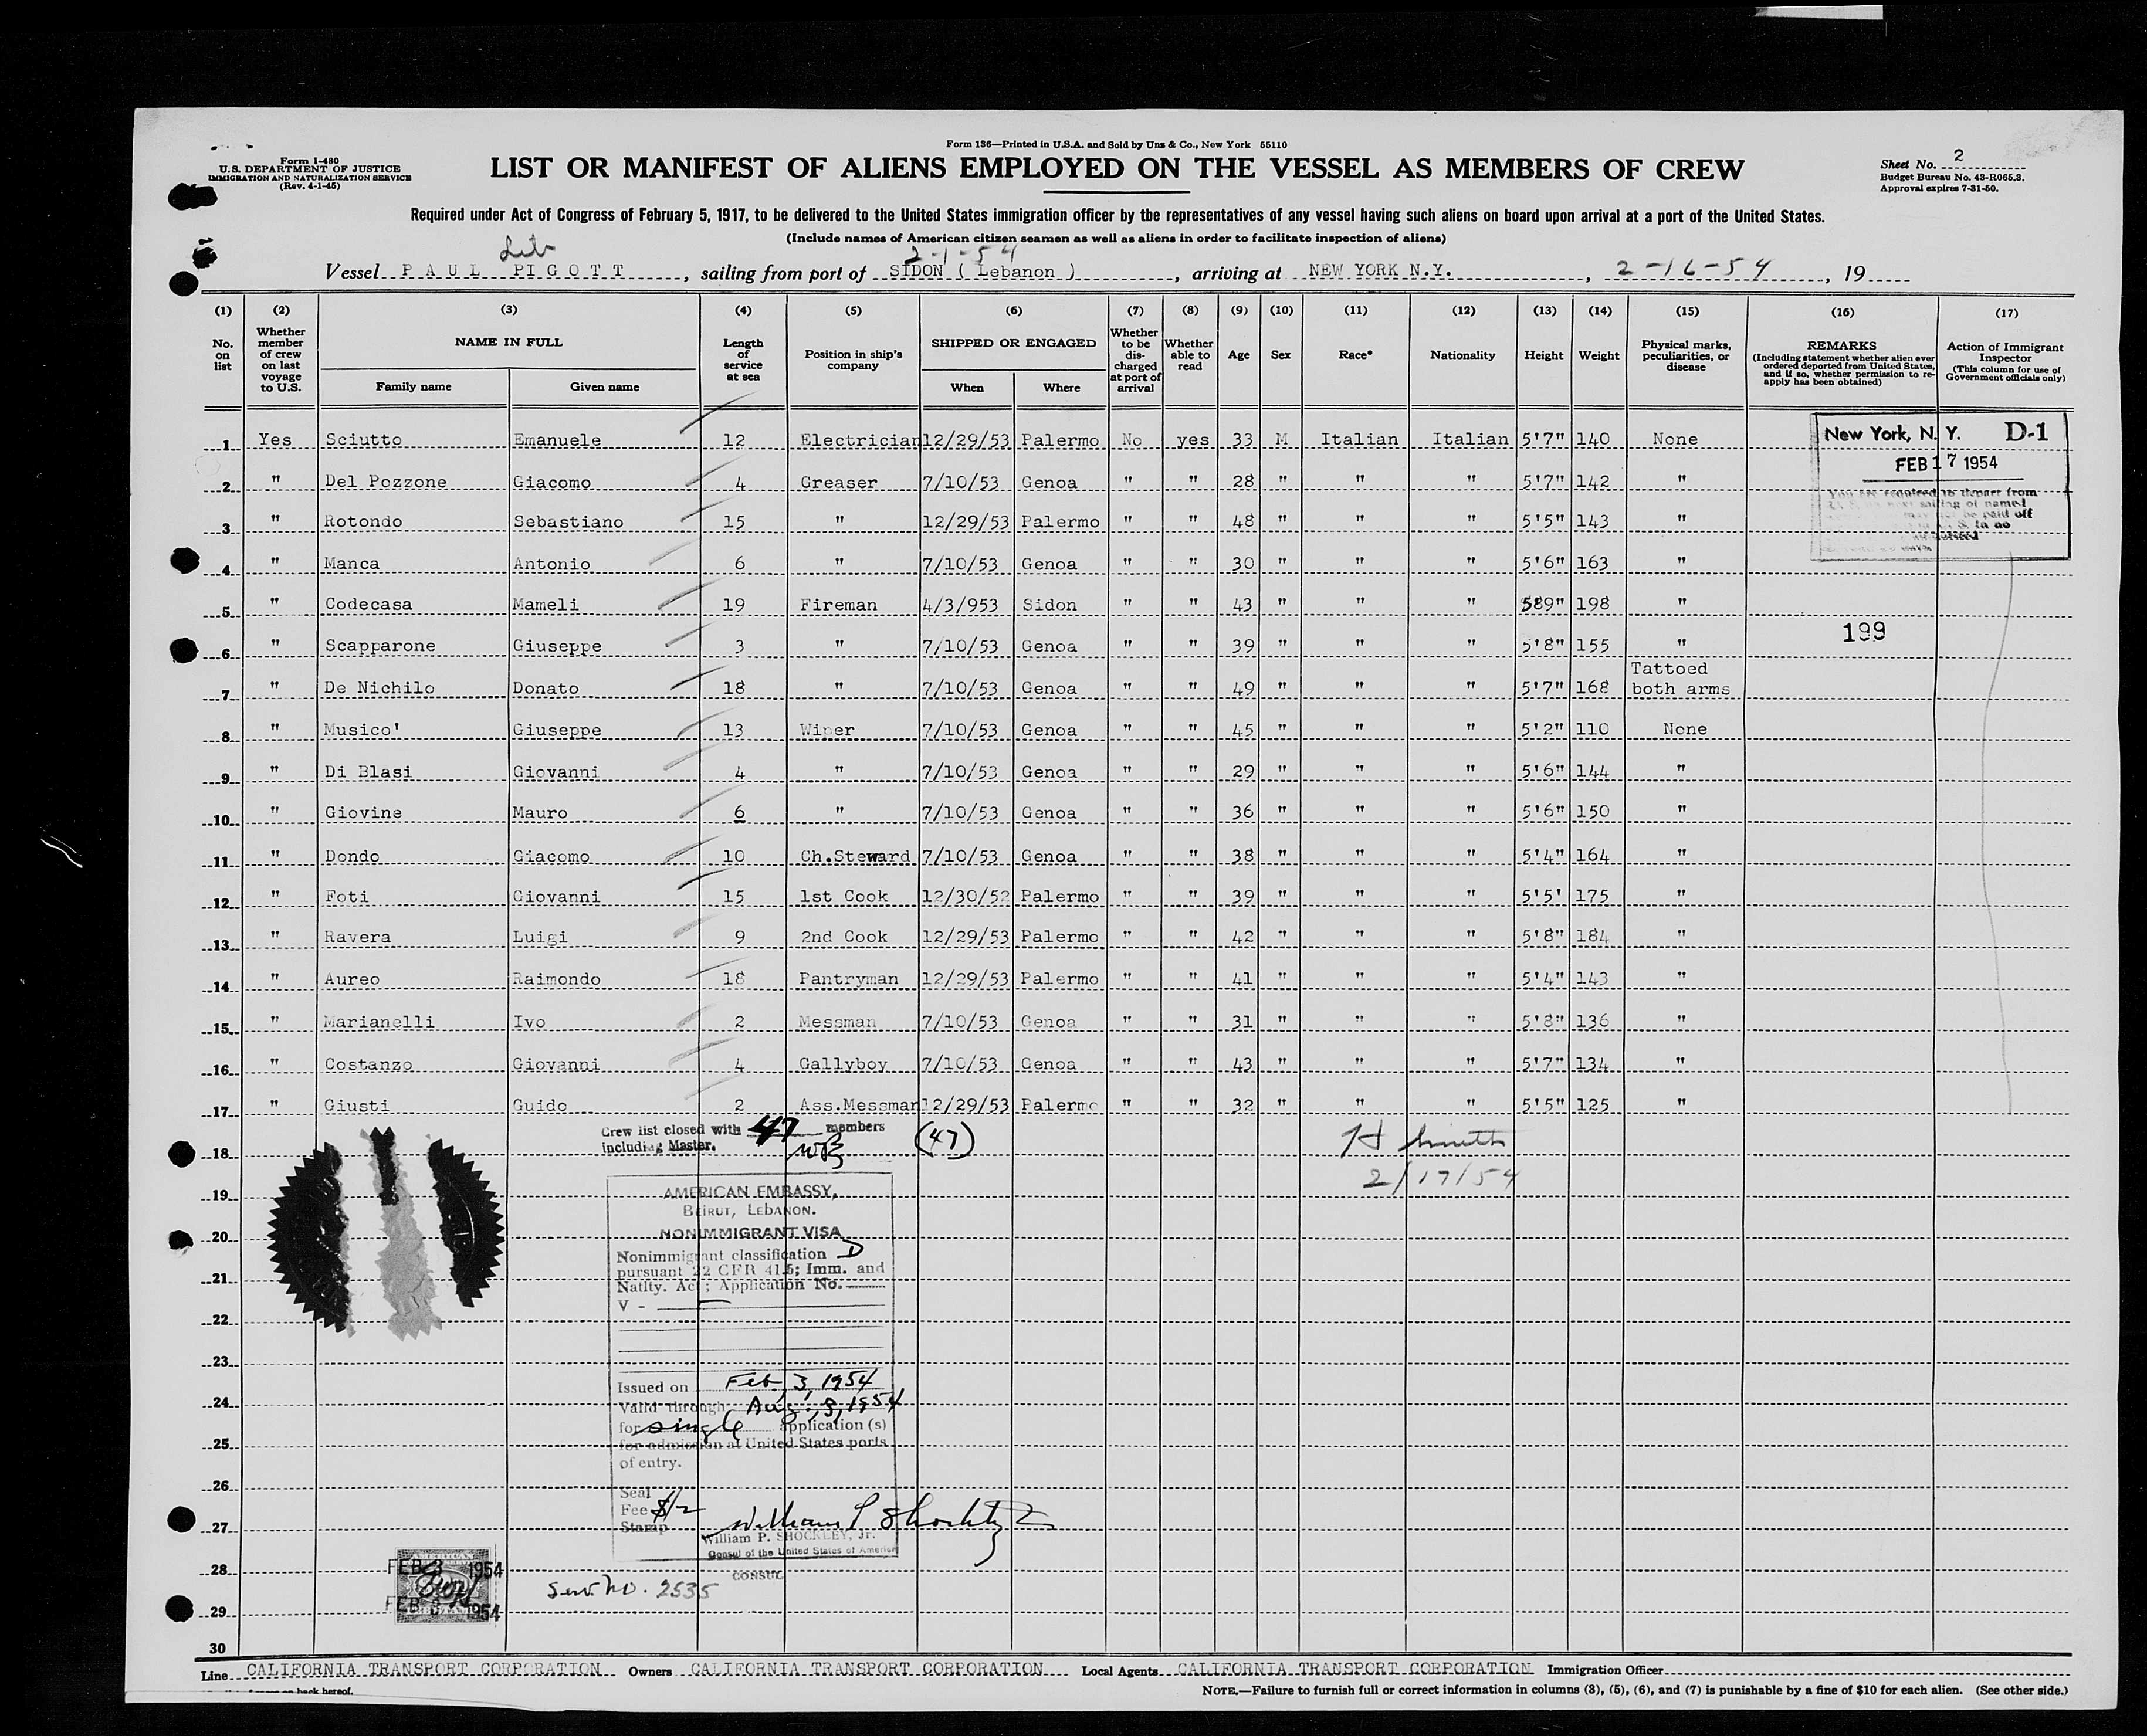 Form 136—Printed in U.S.A. and Sold by Unz & Co., New York 55110
Form I-480
U.S. DEPARTMENT OF JUSTICE
IMMIGRATION AND NATURALIZATION SERVICE
(Rev. 4-1-45)
LIST OR MANIFEST OF ALIENS EMPLOYED ON THE VESSEL AS MEMBERS OF CREW
Sheet No. 2
Budget Bureau No. 43-R065.3.
Approval expires 7-31-50.
Required under Act of Congress of February 5, 1917, to be delivered to the United States immigration officer by the representatives of any vessel having such aliens on board upon arrival at a port of the United States.
(Include names of American citizen seamen as well as aliens in order to facilitate inspection of aliens)
Lib 2-1-54
Vessel PAUL PIGOTT, sailing from port of SIDON ( Lebanon ), arriving at NEW YORK N.Y., 2-16-54, 19
(1) (2) (3) (4) (5) (6) (7) (8) (9) (10) (11) (12) (13) (14) (15) (16) (17)
No. on list
Whether member of crew on last voyage to U.S.
NAME IN FULL
Family name Given name
Length of service at sea
Position in ship's company
SHIPPED OR ENGAGED
When Where
Whether to be discharged at port of arrival
Whether able to read
Age
Sex
Race*
Nationality
Height
Weight
Physical marks, peculiarities, or disease
REMARKS
(Including statement whether alien ever ordered deported from United States, and if so, whether permission to re-apply has been obtained)
Action of Immigrant Inspector
(This column for use of Government officials only)
1 Yes Sciutto Emanuele 12 Electrician 12/29/53 Palermo No yes 33 M Italian Italian 5'7" 140 None
2 " Del Pozzone Giacomo 4 Greaser 7/10/53 Genoa " " 28 " " " 5'7" 142 "
3 " Rotondo Sebastiano 15 " 12/29/53 Palermo " " 48 " " " 5'5" 143 "
4 " Manca Antonio 6 " 7/10/53 Genoa " " 30 " " " 5'6" 163 "
5 " Codecasa Mameli 19 Fireman 4/3/953 Sidon " " 43 " " " 589" 198 "
6 " Scapparone Giuseppe 3 " 7/10/53 Genoa " " 39 " " " 5'8" 155 "
7 " De Nichilo Donato 18 " 7/10/53 Genoa " " 49 " " " 5'7" 168 Tattoed both arms
8 " Musico' Giuseppe 13 Wiper 7/10/53 Genoa " " 45 " " " 5'2" 110 None
9 " Di Blasi Giovanni 4 " 7/10/53 Genoa " " 29 " " " 5'6" 144 "
10 " Giovine Mauro 6 " 7/10/53 Genoa " " 36 " " " 5'6" 150 "
11 " Dondo Giacomo 10 Ch.Steward 7/10/53 Genoa " " 38 " " " 5'4" 164 "
12 " Foti Giovanni 15 1st Cook 12/30/52 Palermo " " 39 " " " 5'5' 175 "
13 " Ravera Luigi 9 2nd Cook 12/29/53 Palermo " " 42 " " " 5'8" 184 "
14 " Aureo Raimondo 18 Pantryman 12/29/53 Palermo " " 41 " " " 5'4" 143 "
15 " Marianelli Ivo 2 Messman 7/10/53 Genoa " " 31 " " " 5'8" 136 "
16 " Costanzo Giovanni 4 Gallyboy 7/10/53 Genoa " " 43 " " " 5'7" 134 "
17 " Giusti Guido 2 Ass.Messman 12/29/53 Palermo " " 32 " " " 5'5" 125 "
New York, N. Y. D-1
FEB 17 1954
You are required to depart from
sailing of named
be paid off
199
Crew list closed with 47 members (47)
including Master. WB
H Smith
2/17/54
18
19
20
21
22
23
24
25
26
27
28
29
30
AMERICAN EMBASSY,
BEIRUT, LEBANON.
NONIMMIGRANT VISA
Nonimmigrant classification D
pursuant 22 CFR 41.5; Imm. and
Natlty. Act; Application No.
V -
Issued on Feb. 3, 1954
Valid through Aug. 3, 1954
for single application (s)
for admission at United States ports
of entry.
Seal
Fee $/2
Stamp
William P Shockley Jr
William P. SHOCKLEY, Jr.
Consul of the United States of America
CONSUL
FEB 3 1954
FEB 3 1954
Serv No. 2535
Line CALIFORNIA TRANSPORT CORPORATION Owners CALIFORNIA TRANSPORT CORPORATION Local Agents CALIFORNIA TRANSPORT CORPORATION Immigration Officer
back hereof.
NOTE.—Failure to furnish full or correct information in columns (3), (5), (6), and (7) is punishable by a fine of $10 for each alien. (See other side.)